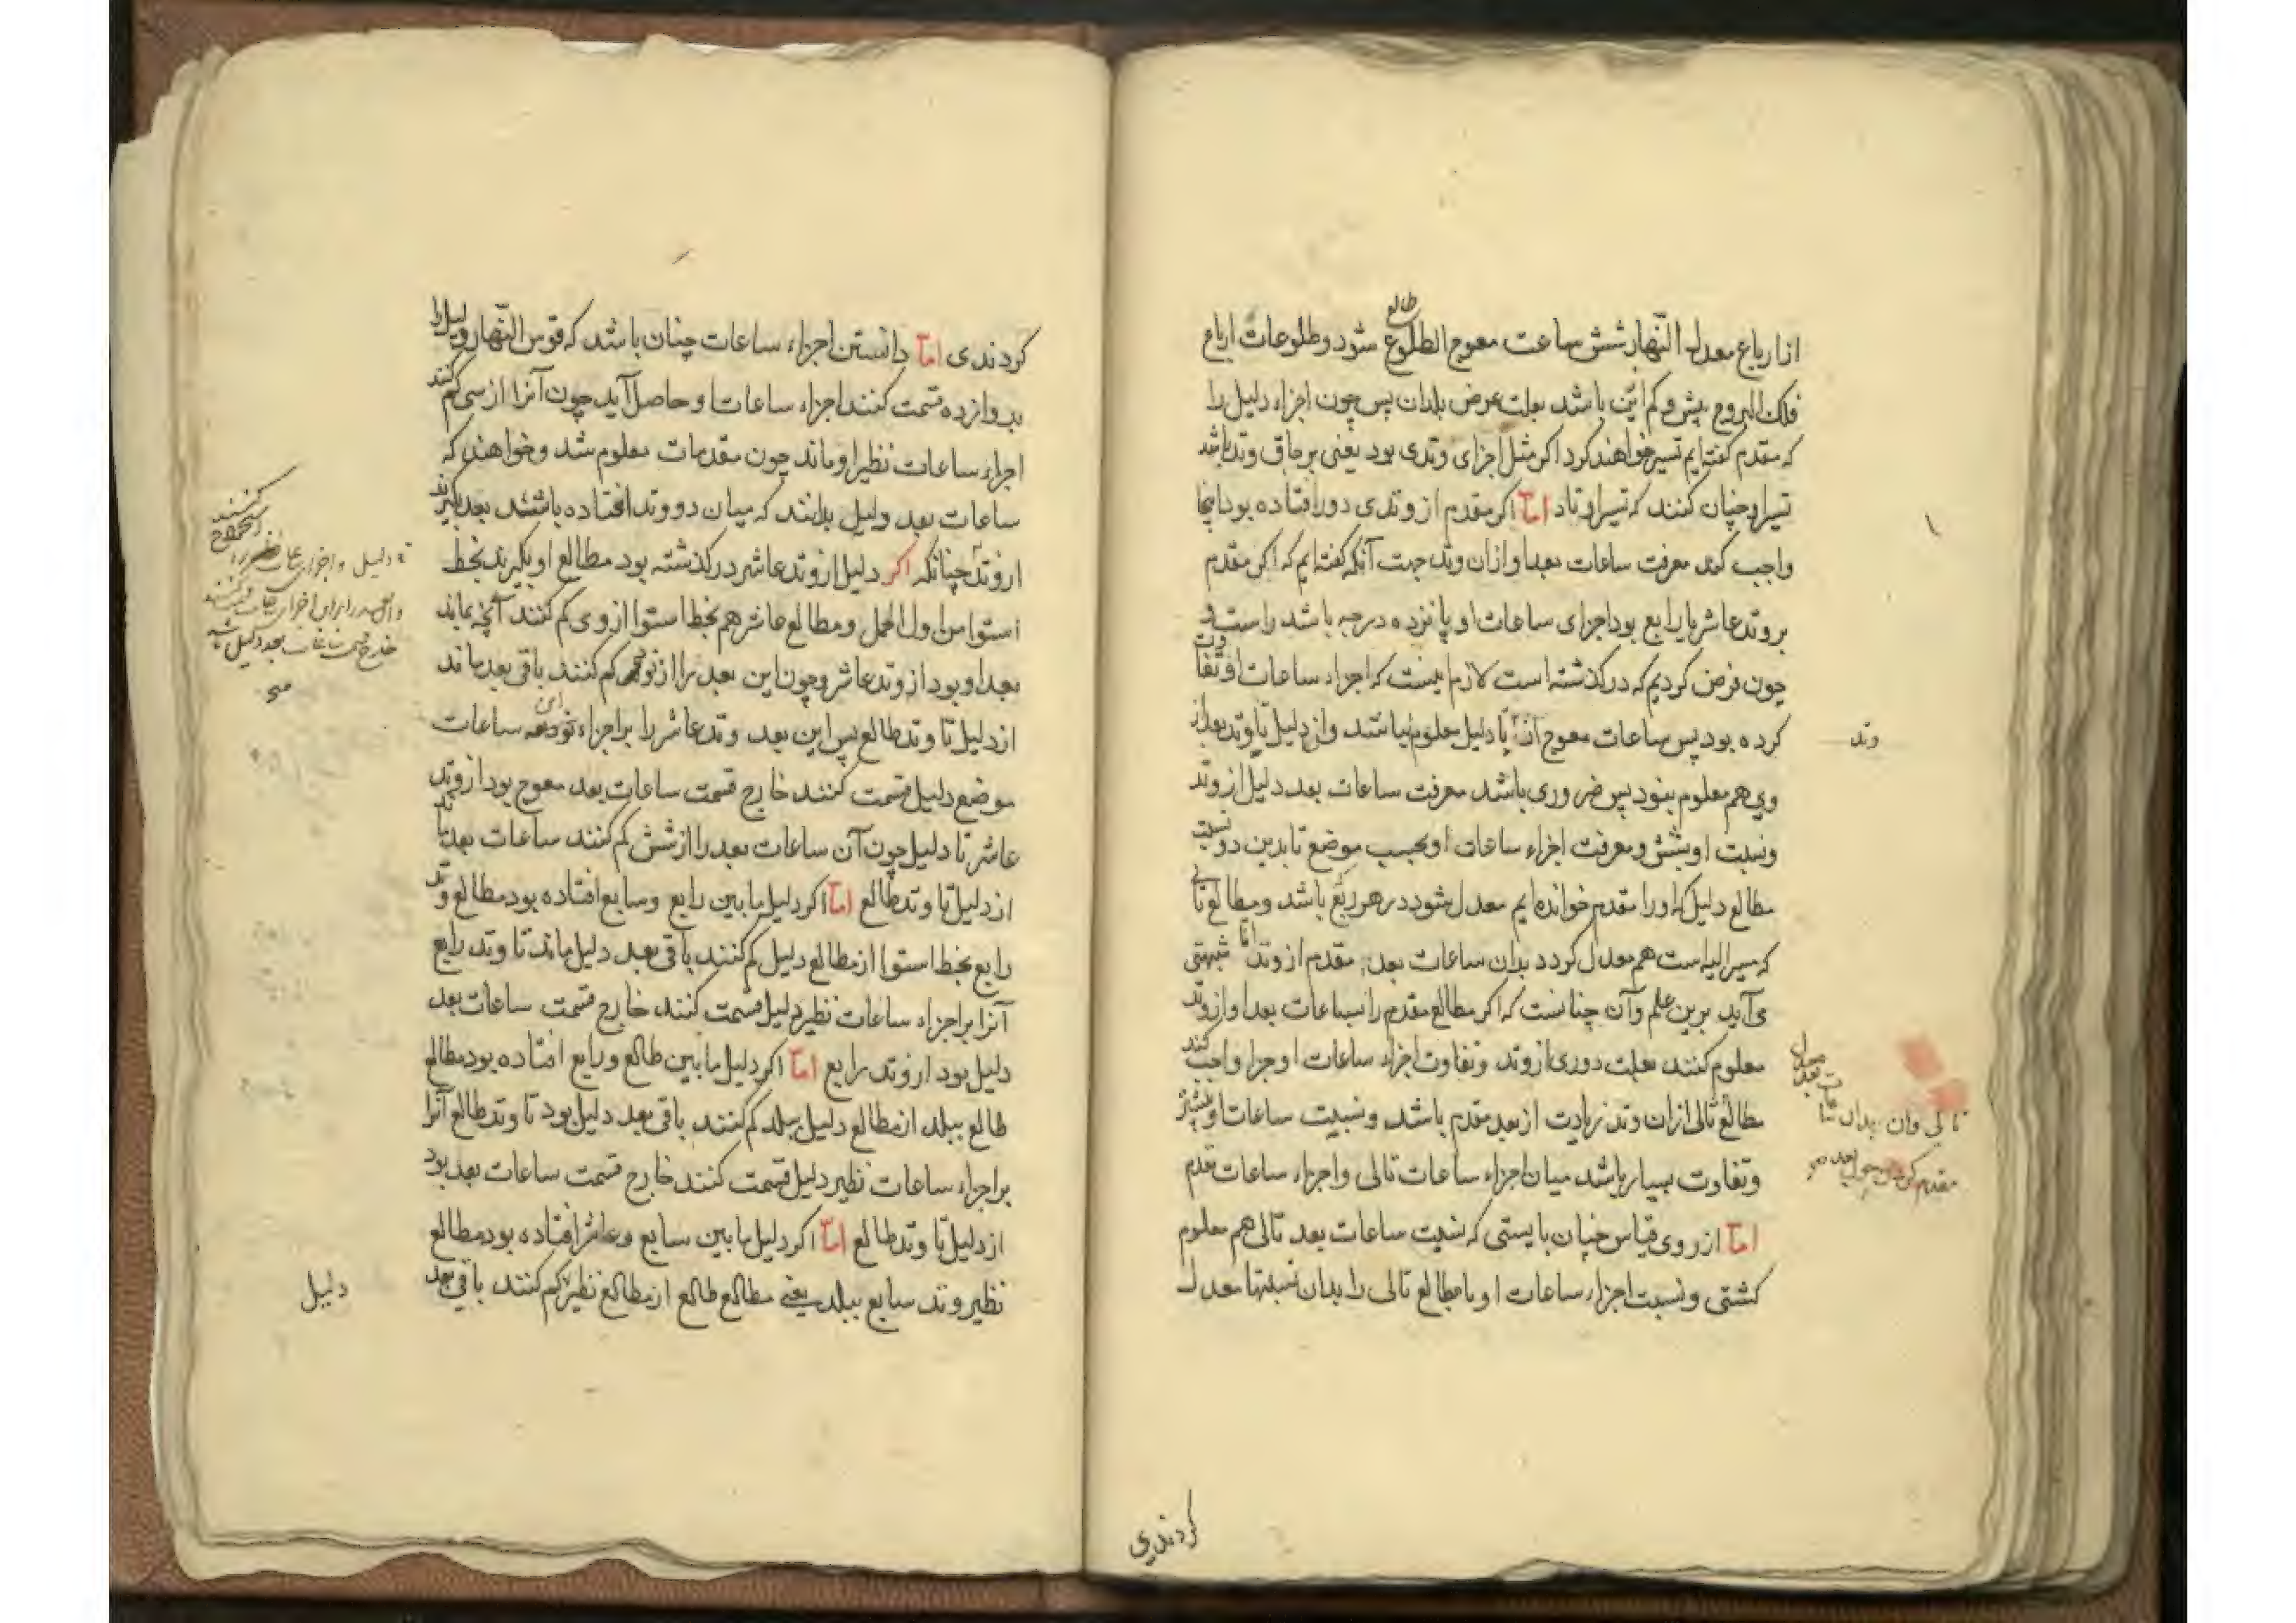 از ارباع معدل النّهار شش ساعت معوج الطلوع شود و طلوعات ارباع
طالع
فلک البروج بیش و کم ازین باشد بعلت عرض بلدان پس چون اجزاء دلیل را
که مقدم گفته‌ایم تسییر خواهند کرد اکر مثل اجزای وتدی بود یعنی بر حاق وتد باشد
تسیر او چنان کنند که تسیر اوتاد امّا اکر مقدم از وتدی دور افتاده بود اینجا
واجب کند معرفت ساعات بعد او ازان وتد جهت آنکه گفته‌ایم که اکر مقدم
بر وتد عاشر یا رابع بود اجزای ساعات او پانزده درجه باشد راست و
چون فرض کردیم که در کذشته است لازم نیست که اجزاء ساعات او تفاوت
کرده بود پس ساعات معوج از تا دلیل معلوم نباشد و از دلیل تا وتد بعد از
وتد
وی هم معلوم نبود پس ضروری باشد معرفت ساعات بعد دلیل از وتد
و نسبت او بشش و معرفت اجزاء ساعات او بحسب موضع تا بدین دو نسبت
مطالع دلیل که او را مقدم خوانده‌ایم معدل شود در هر ربع باشد و مطالع تالی
که مسیر الیه است هم معدل کردد بدان ساعات بعد مقدم از وتد امّا شبهتی
می‌آید برین علم و آن چنانست که اکر مطالع مقدم را بساعات بعد او از وتد
معلوم کنند بعلت دوری از وتد و تفاوت اجزاء ساعات او جزا واجب کند
مطالع تالی ازان وتد زیادت از بعد مقدم باشد و نسبت ساعات او بیشتر
تالی وان بدان
و تفاوت بسیار باشد میان اجزاء ساعات تالی و اجزاء ساعات مقدم
امّا از روی قیاس چنان بایستی که نسبت ساعات بعد تالی هم معلوم
کشتی و نسبت اجزاء ساعات او با مطالع تالی را بدان نسبتها معدل
کردندی
کردندی امّا دانستن اجزاء ساعات چنان باشد که قوس النّهار و لیل را
بدوازده قسمت کنند اجزاء ساعات او حاصل آید چون آنرا از سی کم کنند
اجزاء ساعات نظیر او ماند چون مقدمات معلوم شد و خواهند که
ساعات بعد دلیل بدانند که میان دو وتد افتاده باشند بعد بگیرند
از وتد چنانکه اکر دلیل از وتد عاشر در کذشته بود مطالع او بگیرند بخط
استوا من اول الحمل و مطالع عاشر هم بخط استوا از وی کم کنند آنچه بماند
بعد او بود از وتد عاشر و چون این بعد را از نود کم کنند باقی بعد ماند
از دلیل تا وتد طالع پس این بعد وتد عاشر را بر اجزاء ساعات
موضع دلیل قسمت کنند خارج قسمت ساعات بعد معوج بود از وتد
عاشر تا دلیل چون آن ساعات بعد را از شش کم کنند ساعات بعد ماند
از دلیل تا وتد طالع امّا اکر دلیل ما بین رابع و سابع افتاده بود مطالع وتد
رابع بخط استوا از مطالع دلیل کم کنند باقی بعد دلیل ماند تا وتد رابع
آنرا بر اجزاء ساعات نظیر دلیل قسمت کنند خارج قسمت ساعات بعد
دلیل بود از وتد رابع امّا اکر دلیل ما بین طالع و رابع افتاده بود مطالع
طالع ببلد از مطالع دلیل ببلد کم کنند باقی بعد دلیل بود تا وتد طالع آنرا
بر اجزاء ساعات نظیر دلیل قسمت کنند خارج قسمت ساعات بعد بود
از دلیل تا وتد طالع امّا اکر دلیل ما بین سابع و عاشر افتاده بود مطالع
نظیر وتد سابع ببلد یعنی مطالع طالع از مطالع نظیر کم کنند باقی بعد
دلیل